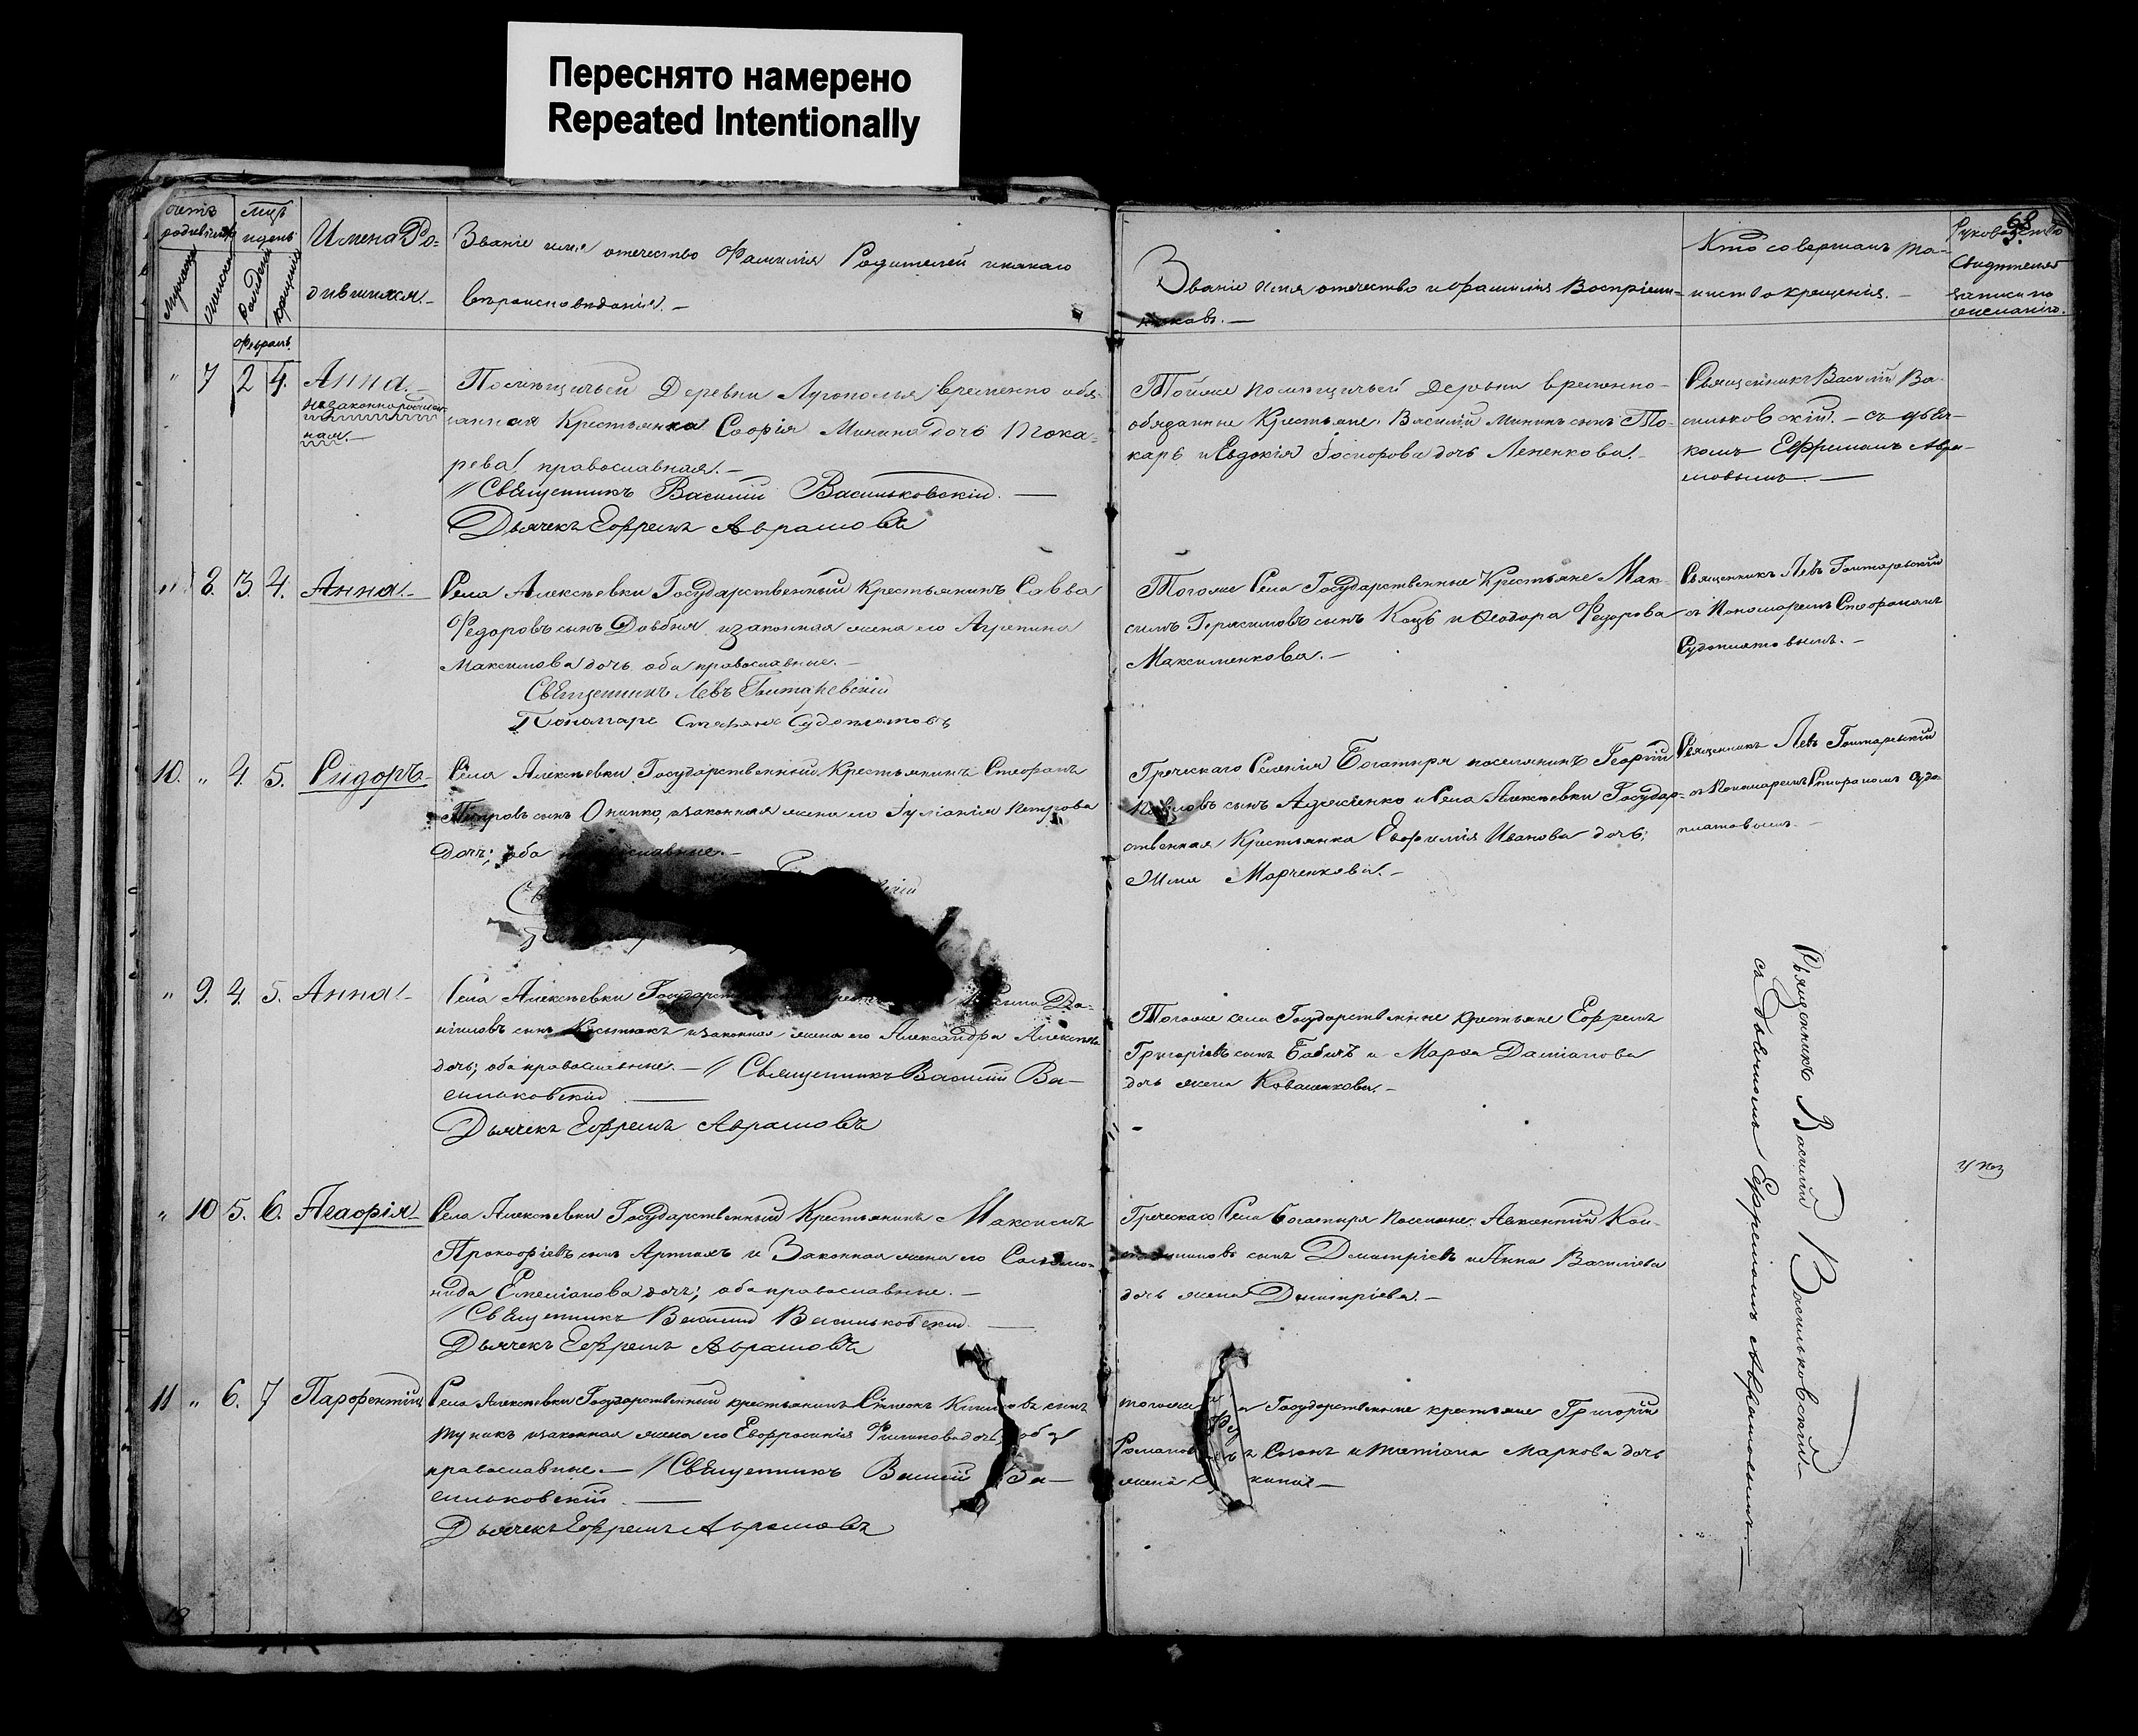 Переснято намерено
Repeated Intentionally
68
счетъ родившихся
Мужеска
Женска
Мцъ и день
Рожденія
Крещенія
Имена Ро-
дившихся.
Званіе имя отечество Фамилія Родителей и какаго
вѣроисповѣданія.
Званіе имя отечество и фамилія Воспріем-
никовъ.
Кто совершалъ та-
инство крещенія.
Рукоприкладство
свидѣтелей
записи по
желанію.
Февраль.
" 7 2 4. Анна.
незаконнорожден-
ная.
Помѣщичьей Деревни временно обя-
занная Крестьянка Софія Минина дочь Тока-
рева, православная.
Священникъ Василій Васильковскій.
Дьячекъ Ефремъ Аврамовъ
Тойже помѣщичьей деревни временно-
обязанные Крестьяне: Василій Мининъ сынъ То-
карь и Евдокія дочь Лененкова.
Священникъ Василій Ва-
сильковскій. съ дьяч-
комъ Ефремомъ Авра-
мовымъ.
" 8. 3. 4. Анна.
Села Алексѣевки Государственный крестьянинъ Савва
Федоровъ сынъ Довбня и законная жена его Агрепина
Максимова дочь оба православные.
Священникъ Левъ Гонтаревскій
Пономарь Стефанъ Судоплатовъ
Тогоже Села Государственные Крестьяне Мак-
симъ Герасимовъ сынъ Коцъ и Феодора Федорова
Максименкова.
Священникъ Левъ Гонтаревскій
съ Пономаремъ Стефаномъ
Судоплатовымъ.
10. " 4. 5. Сидоръ
Села Алексѣевки Государственный Крестьянинъ Стефанъ
Петровъ сынъ Онипко, и законная жена его Іуліанія Петрова
дочь; оба православные.
Греческаго Селенія Богатыря поселянинъ Георгій
Павловъ сынъ и Села Алексѣевки Государ-
ственная Крестьянка Евфимія Иванова дочь;
жена Марченкова.
Священникъ Левъ Гонтаревскій
съ Пономаремъ Стефаномъ Судо-
платовымъ.
" 9. 4. 5. Анна
Села Алексѣевки Да-
ніиловъ сынъ Костюкъ и законная жена его Александра Алексѣева
дочь; оба православные. Священникъ Василій Ва-
сильковскій
Дьячекъ Ефремъ Аврамовъ
Тогоже села Государственные крестьяне Ефремъ
Григоріевъ сынъ Бабичъ и Марфа Даміанова
дочь жена Коваленкова.
Священникъ Василій Васильковскій
съ Дьячкомъ Ефремомъ Аврамовымъ.
" 10 5. 6. Агафія
Села Алексѣевки Государственный Крестьянинъ Максимъ
Прокофіевъ сынъ и Законная жена его Соломо-
нида Емеліанова дочь; оба православные.
Священникъ Василій Васильковскій.
Дьячекъ Ефремъ Аврамовъ
Греческаго Села Богатыря Поселяне: Авксентій Кон-
стантиновъ сынъ Дмитріевъ и Анна Василіева
дочь жена Дмитріева.
11 " 6. 7 Парфентій
Села Алексѣевки Государственный крестьянинъ сынъ
и законная жена его Евфросинія Филипова дочь, оба
православные. Священникъ Василій Ва-
сильковскій.
Дьячекъ Ефремъ Аврамовъ
Государственные крестьяне Григорій
и Татіана Маркова дочь
жена